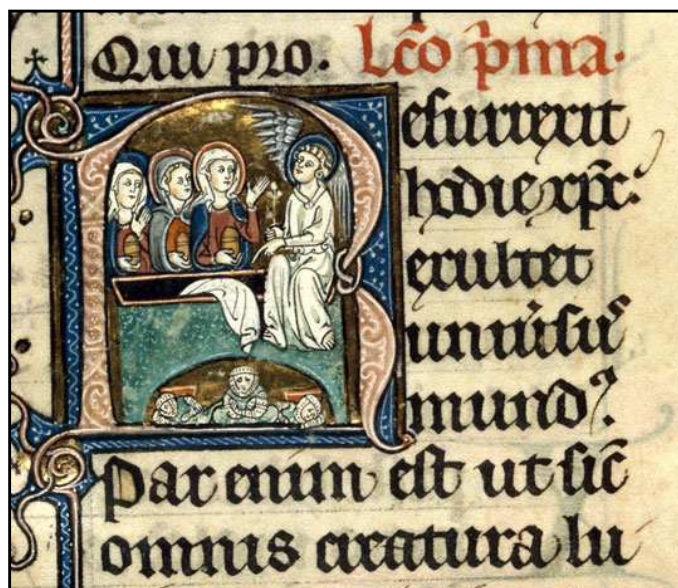 Qui pro. Lc̄o p̄ma.
Resurrexit
hodie xp̄c.
exultet
uniu̓suꝰ
mundꝰ.
Par enim est ut sic̄
omnis creatura lu